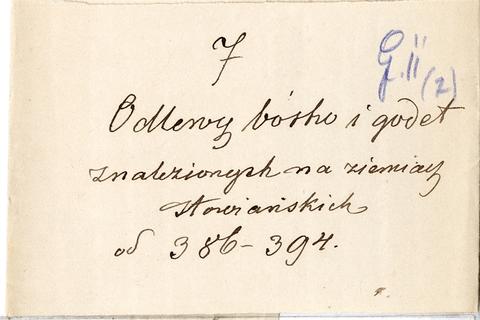 7
G.II
(2)
Odlewy bóstw i godeł
znalezionych na ziemiach
słowiańskich
od 386-394.